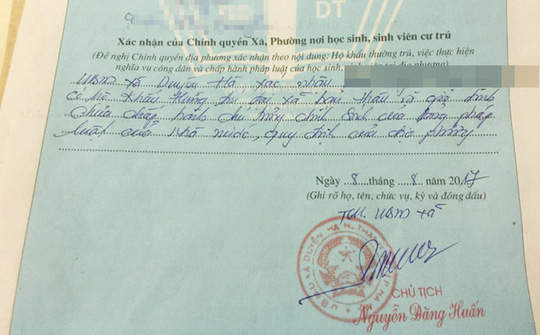 DT
Xác nhận của Chính quyền Xã, Phường nơi học sinh, sinh viên cư trú
(Đề nghị Chính quyền địa phương xác nhận theo nội dung: Hộ khẩu thường trú, việc thực hiện
nghĩa vụ công dân và chấp hành pháp luật của học sinh,
UBND xã Duyên Hà xác nhận
có hộ khẩu thường trú tại xã bản thân và gia đình
chưa chấp hành chủ trương chính sách của Đảng pháp
luật của Nhà nước, quy định của địa phương
Ngày 8 tháng 8 năm 2017
(Ghi rõ họ, tên, chức vụ, ký và đóng dấu)
TM. UBND xã
CHỦ TỊCH
Nguyễn Đăng Huấn